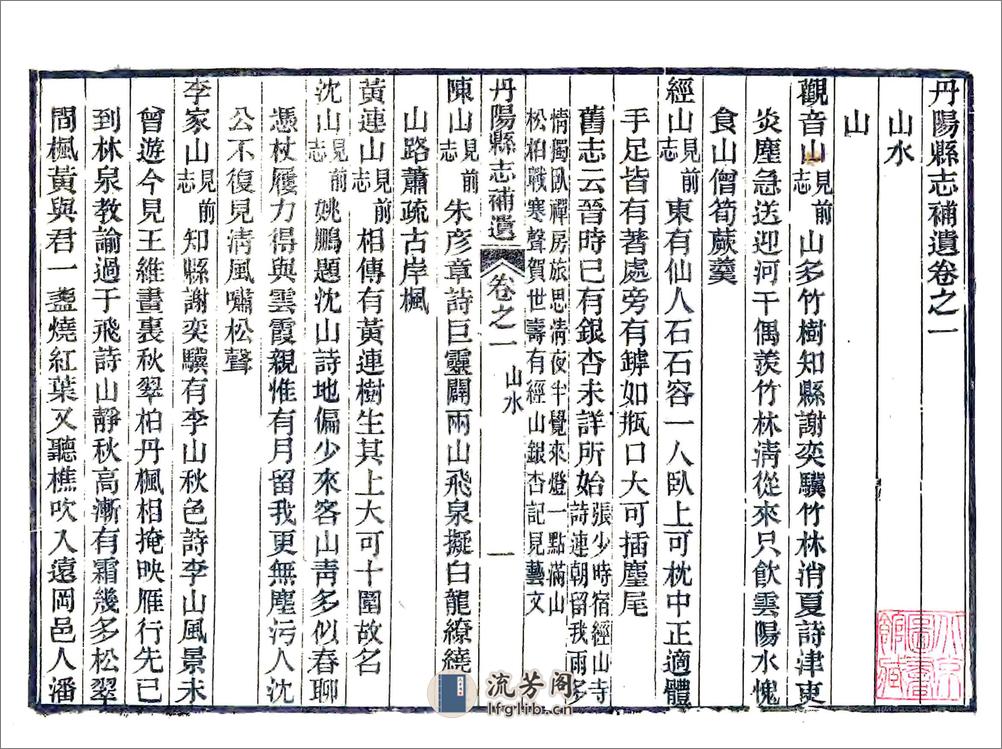 丹陽縣志補遺卷之一
山水
山
觀音山見前志 山多竹樹知縣謝奕驥竹林消夏詩津吏
炎塵急送迎河干偶羨竹林淸從來只飮雲陽水愧
食山僧筍蕨羹
經山見前志 東有仙人石石容一人臥上可枕中正適體
手足皆有著處旁有罅如瓶口大可插麈尾
舊志云晉時已有銀杏未詳所始張少時宿經山寺
詩連朝留我雨多
情獨臥禪房旅思淸夜半覺來燈一點滿山
松柏戰寒聲賀世壽有經山銀杏記見藝文
陳山見前志 朱彥章詩巨靈闢兩山飛泉擬白龍繚繞
山路蕭疏古岸楓
黃連山見前志 相傳有黃連樹生其上大可十圍故名
沈山見前志 姚鵬題沈山詩地偏少來客山靑多似春聊
憑杖屨力得與雲霞親惟有月留我更無塵污人沈
公不復見淸風嘯松聲
李家山見前志 知縣謝奕驥有李山秋色詩李山風景未
曾遊今見王維畫裏秋翠柏丹楓相掩映雁行先已
到林泉教諭過于飛詩山靜秋高漸有霜幾多松翠
間楓黃與君一盞燒紅葉又聽樵吹入遠岡邑人潘
丹陽縣志補遺 卷之一 山水 一
北京圖書館藏
流芳阁
lfglib.cn